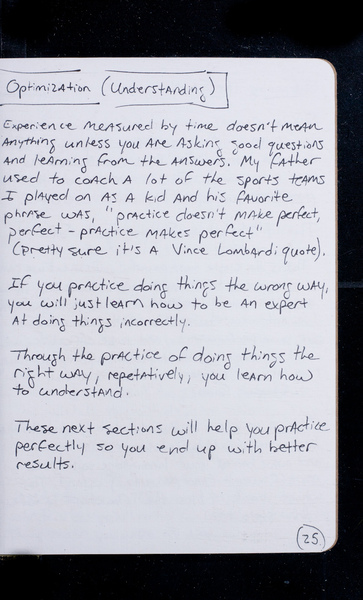 Optimization (Understanding)
Experience measured by time doesn't mean
anything unless you are asking good questions
and learning from the answers. My father
used to coach a lot of the sports teams
I played on as a kid and his favorite
phrase was, "practice doesn't make perfect,
perfect-practice makes perfect"
(pretty sure it's a Vince Lombardi quote).
If you practice doing things the wrong way,
you will just learn how to be an expert
at doing things incorrectly.
Through the practice of doing things the
right way, repetatively, you learn how
to understand.
These next sections will help you practice
perfectly so you end up with better
results.
25